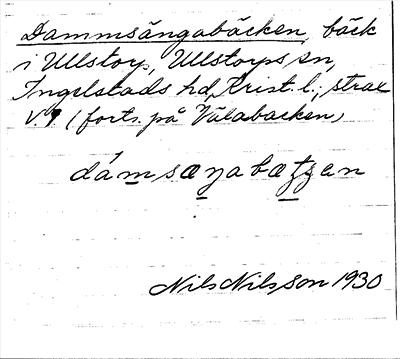 Dammsängabäcken, bäck
i Ullstorp, Ullstorps sn,
Ingelstads hd, Krist. l., strax
V. (forts. på Välabäcken)
dámsæŋabætʃen
Nils Nilsson 1930